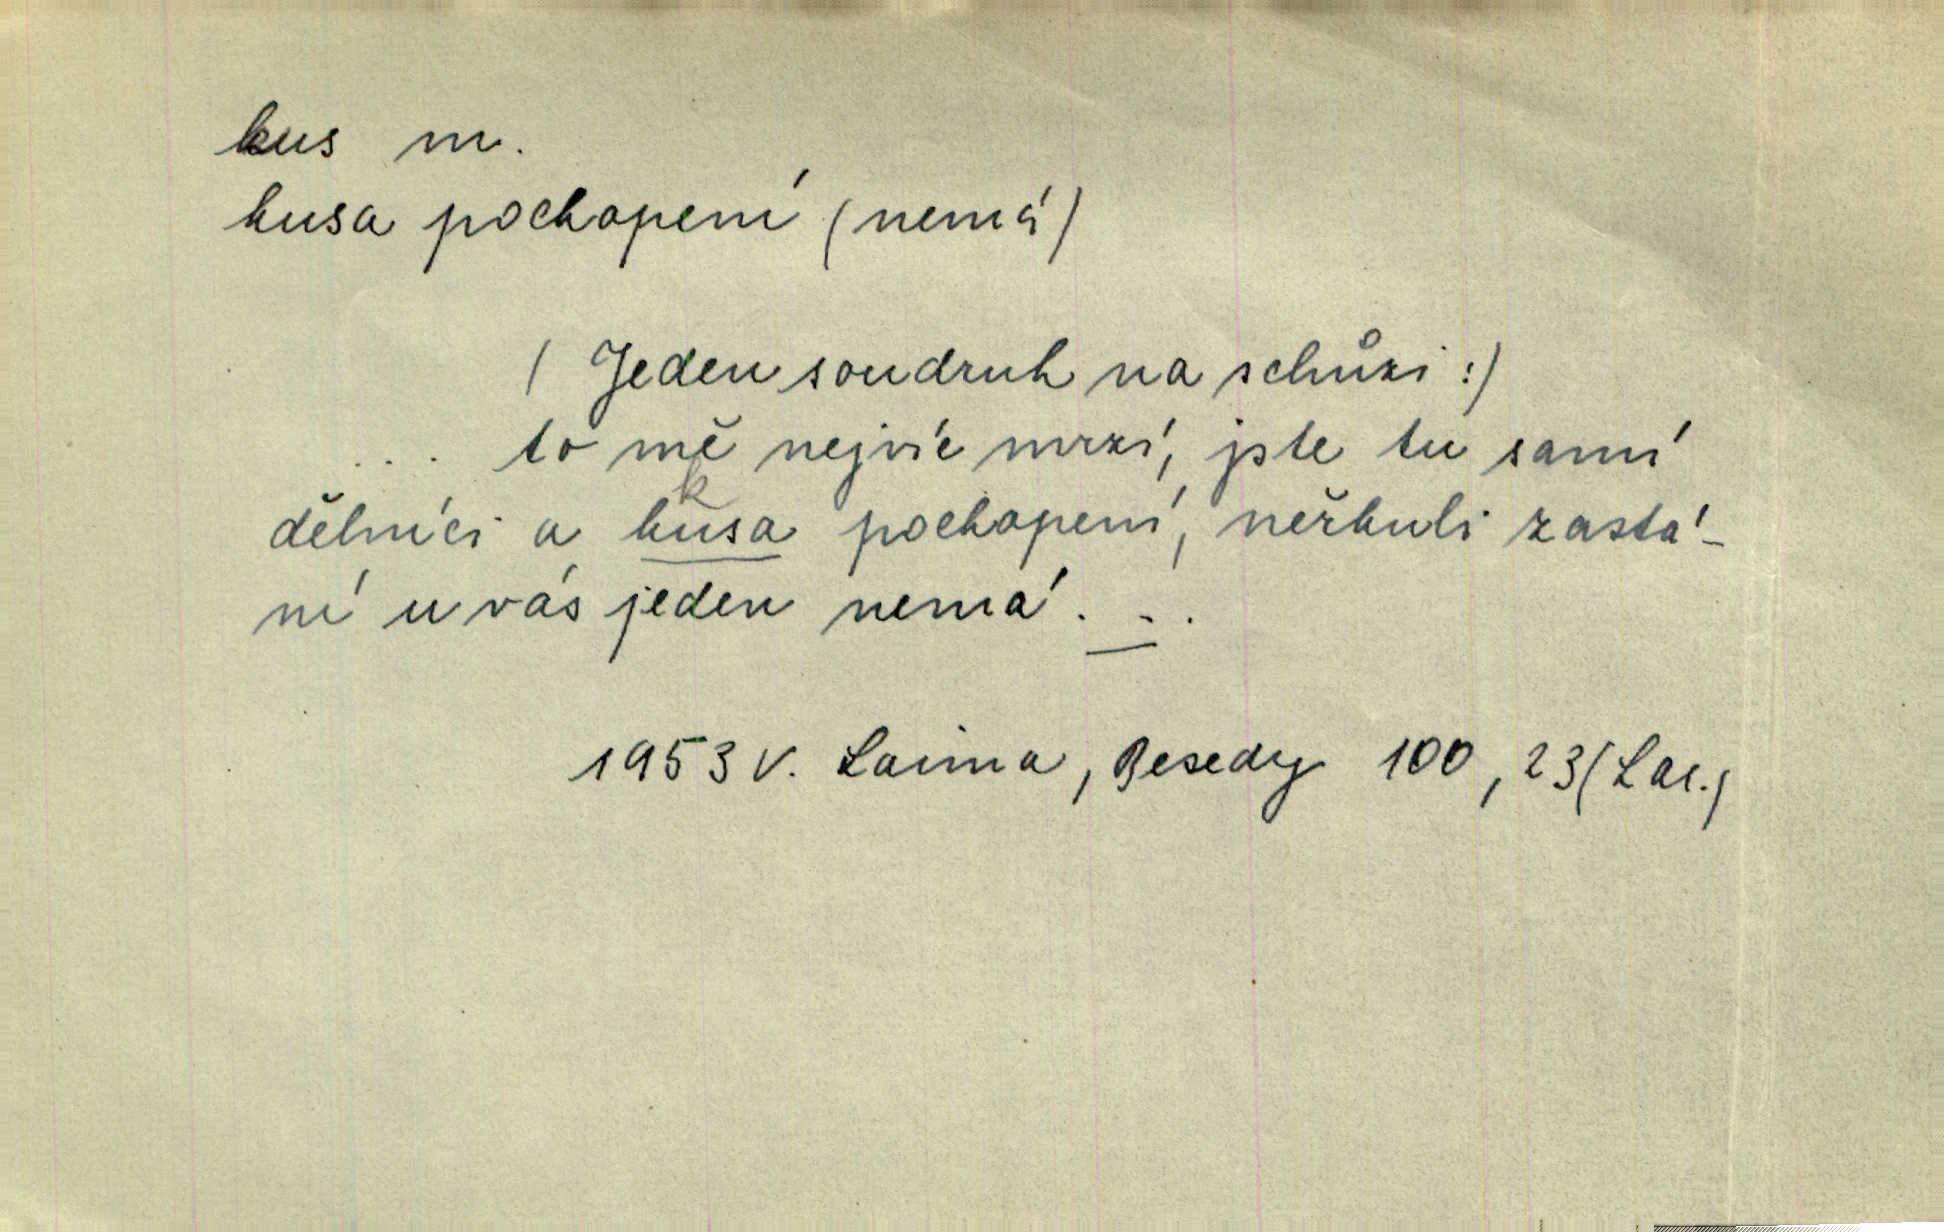 kus m.
kusa pochopení (nemá)
(Jeden soudruh na schůzi:)
... to mě nejvíc mrzí, jste tu samí
k
dělníci a kusa pochopení, neřkuli zastá-
ní u vás jeden nemá...
1953 V. Lacina, Besedy 100, 23 (Lac.)